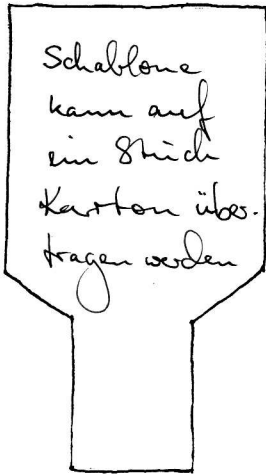 Schablone
kann auf
ein Stück
Karton über-
tragen werden